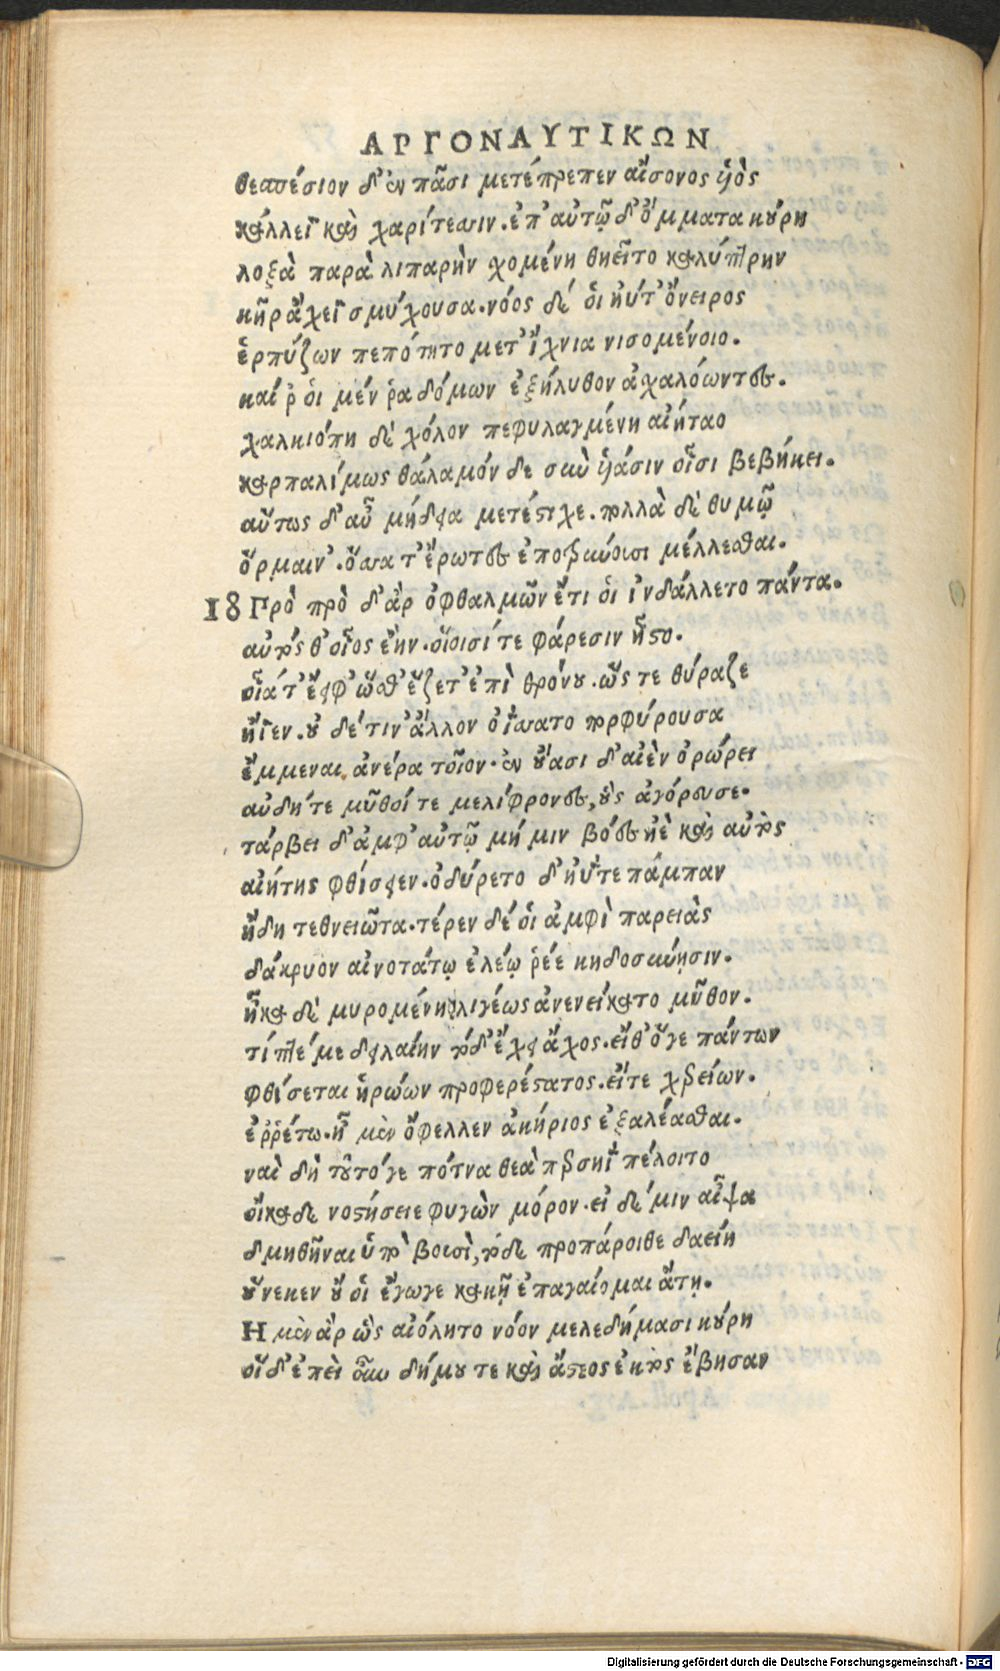 ΑΡΓΟΝΑΥΤΙΚΩΝ
θεσπέσιον δ' ἐν πᾶσι μετέπρεπεν αἴσονος υἱὸς
κάλλεϊ καὶ χαρίτεσσιν. ἐπ' αὐτῷ δ' ὄμματα κούρη
λοξὰ παρὰ λιπαρὴν χομένη θηεῖτο καλύπτρην
κῆρ ἄχεϊ σμύχουσα. νόος δέ οἱ ἠύτ' ὄνειρος
ἑρπύζων πεπότητο μετ' ἴχνια νισομένοιο.
καί ῥ οἱ μέν ῥα δόμων ἐξήλυθον ἀχαλόωντες.
χαλκιόπη δὲ χόλον πεφυλαγμένη αἰήταο
καρπαλίμως θάλαμόν δε σὺν υἱάσιν οἷσι βεβήκει.
αὔτως δ' αὖ μήδεια μετέστιχε. πολλὰ δὲ θυμῷ
ὅρμαιν'. ὅσσα τ' ἔρωτες ἐποτρύνουσι μέλλεσθαι.
18 Προ πρὸ δ' ἀρ ὀφθαλμῶν ἔτι οἱ ἰνδάλλετο πάντα.
αὐτός θ' οἷος ἔην. οἵοισί τε φάρεσιν ἧστο.
οἷά τ' ἔειφ' ὥς θ' ἕζετ' ἐπὶ θρόνου. ὥς τε θύραζε
ἤϊεν. οὐ δέ τιν' ἄλλον ὀΐσσατο πορφύρουσα
ἔμμεναι ἀνέρα τοῖον. ἐν οὔασι δ' αἰὲν ὀρώρει
αὐδή τε μῦθοί τε μελίφρονες, οὓς ἀγόρευσε.
τάρβει δ' ἀμφ' αὐτῷ μή μιν βόες ἠὲ καὶ αὐτὸς
αἰήτης φθίσειεν. ὀδύρετο δ' ἠΰτε πάμπαν
ἤδη τεθνειῶτα. τέρεν δέ οἱ ἀμφὶ παρειὰς
δάκρυον αἰνοτάτῳ ἐλέῳ ῥέε κηδοσύνῃσιν.
ἦκα δὲ μυρομένη λιγέως ἀνενείκατο μῦθον.
τίπτέ με δειλαίην τόδ' ἔχει ἄχος. εἴθ' ὅγε πάντων
φθίσεται ἡρώων προφερέστατος. εἴτε χερείων.
ἐρρέτω. ἦ μὲν ὄφελλεν ἀκήριος ἐξαλέασθαι.
ναὶ δὴ τοῦτόγε πότνα θεὰ περσηῒ πέλοιτο
οἴκαδε νοστήσειε φυγὼν μόρον. εἰ δέ μιν αἶψα
δμηθῆναι ὑπὸ βουσὶ, τόδε προπάροιθε δαείη
οὕνεκεν οὔ οἱ ἔγωγε κακῇ ἐπαγαίομαι ἄτῃ.
Η μὲν ἀρ ὣς αἰόλητο νόον μελεδήμασι κούρη
οἵδ' ἐπεὶ οὖν δήμου τε καὶ ἄστεος ἐκτὸς ἔβησαν
Digitalisierung gefördert durch die Deutsche Forschungsgemeinschaft - DFG